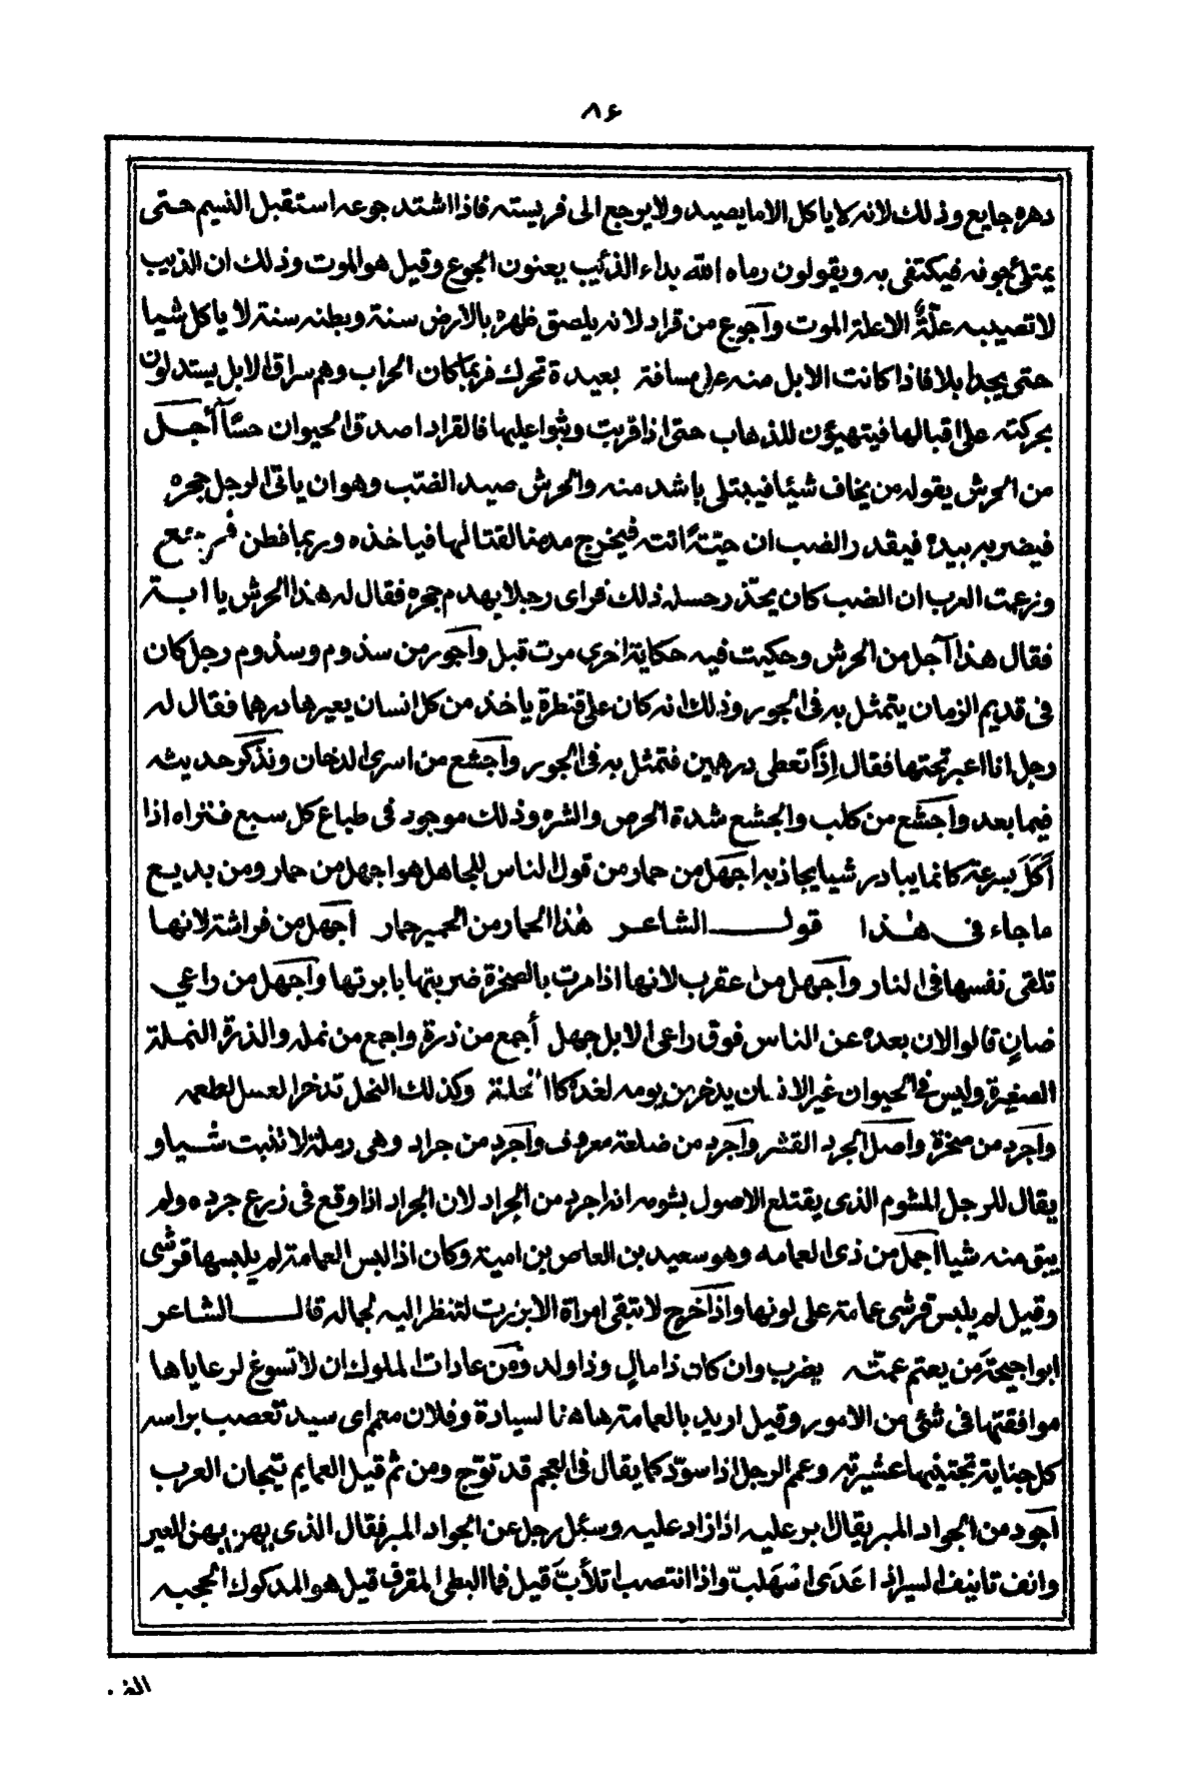 ٨۶
دهره جايع وذلك لانه لا ياكل الا ما يصيد ولا يرجع الى فريسته فاذا اشتد جوعه استقبل النسيم حتى
يمتلئ جوفه فيكتفى به ويقولون رماه الله بداء الذئيب يعنون الجوع وقيل هو الموت وذلك ان الذيب
لا تصيبه علّةٌ الا علة الموت وآجوع من قراد لانه يلصق ظهره بالارض سنة وبطنه سنة لا ياكل شيا
حتى يجد ابلا فاذا كانت الابل منه على مسافة بعيدة تحرك فربما كان الحراب وهم سراق الابل يستدلون
بحركته على اقبالها فيتهيؤن للذهاب حتى اذا قربت وثبوا عليها فالقراد اصدق الحيوان حسّاً آجل
من الحرش يقوله من يخاف شيئا فيبتلى باشد منه والحرش صيد الضبّ وهو ان ياتى الرجل جحره
فيضربه بيده فيقدر الضب ان حيّةً اتته فيخرج مدنبا لقتالها فياخذه وربما فطن فرجع
وزعمت العرب ان الضب كان يحذّر حسله ذلك فراى رجلا يهدم جحره فقال له هذا الحرش يا ابة
فقال هذا آجل من الحرش وحكيت فيه حكاية اخرى مرت قبل وآجور من سذوم وسذوم رجل كان
فى قديم الزمان يتمثل به فى الجور وذلك انه كان على قنطرة ياخذ من كل انسان يعبرها درهما فقال له
رجل انا اعبر تحتها فقال اذًا تعطى درهمين فتمثل به فى الجور وآجشع من اسرى الدخان ونذكر حديثه
فيما بعد وآجشع من كلب والجشع شدة الحرص والشره وذلك موجود فى طباع كل سبع فتراه اذا
آكل بسرعة كانما يبادر شيا يجاذبه اجهل من حمار من قول الناس للجاهل هو اجهل من حمار ومن بديع
ما جاء فى هذا قول الشاعر هذا الحمار من الحمير حمار آجهل من فراشة لانها
تلقى نفسها فى النار وآجهل من عقرب لانها اذا مرت بالصخرة ضربتها بابرتها وآجهل من راعي
ضانٍ قالوا لان بعده عن الناس فوق راعى الابل جهل أجمع من ذرة واجمع من نمله والذرة النملة
الصغيرة وليس فى الحيوان غير الانسان يدخر من يومه لغده كالنملة وكذلك النحل تدخر العسل لطعمه
وآجرد من صخرة واصل الجرد القشر وآجرد من ضلعة معروف وآجرد من جراد وهى رملة لا تنبت شيا و
يقال للرجل المشوم الذى يقتلع الاصول بشومه انه اجرد من الجراد لان الجراد اذا وقع فى زرع جرده ولم
يبق منه شيا اجمل من ذى العمامه وهو سعيد بن العاص بن امية وكان اذا لبس العمامة لم يلبسها قرشى
وقيل لم يلبس قرشى عمامة على لونها واذا خرج لا تبقى امراة الا برزت لتنظر اليه لجماله قال الشاعر
ابو احيحة من يعتم عمّته يضرب وان كان ذا مالٍ وذا ولد ومن عادات الملوك ان لا تسوغ لرعاياها
موافقتها فى شئ من الامور وقيل اريد بالعمامة هاهنا السيادة وفلان معمم اى سيد تعصب براسه
كل جناية تجتنيها عشيرته وعمم الرجل اذا سوّد كما يقال فى العجم قد توّج ومن ثم قيل العمايم تيجان العرب
آجود من الجواد المبر يقال ابر عليه اذا زاد عليه وسئل رجل عن الجواد المبر فقال الذى لهز لهز العير
وانف تانيف السير اذا عَدَى اسهلبّ واذا انتصب اتلأبّ قيل فما البطى المقرف قيل هو المدكوك الحجبه